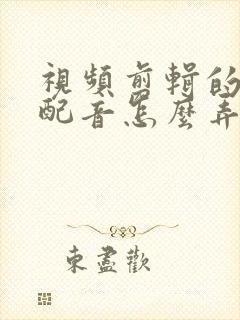 視頻剪輯的
配音怎麼弄
東盡歡